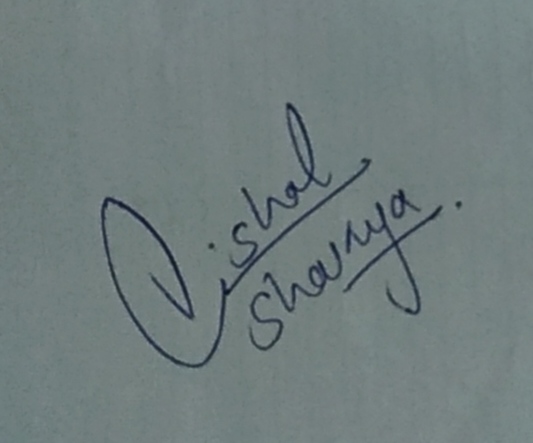 Vishal
Shaurya.